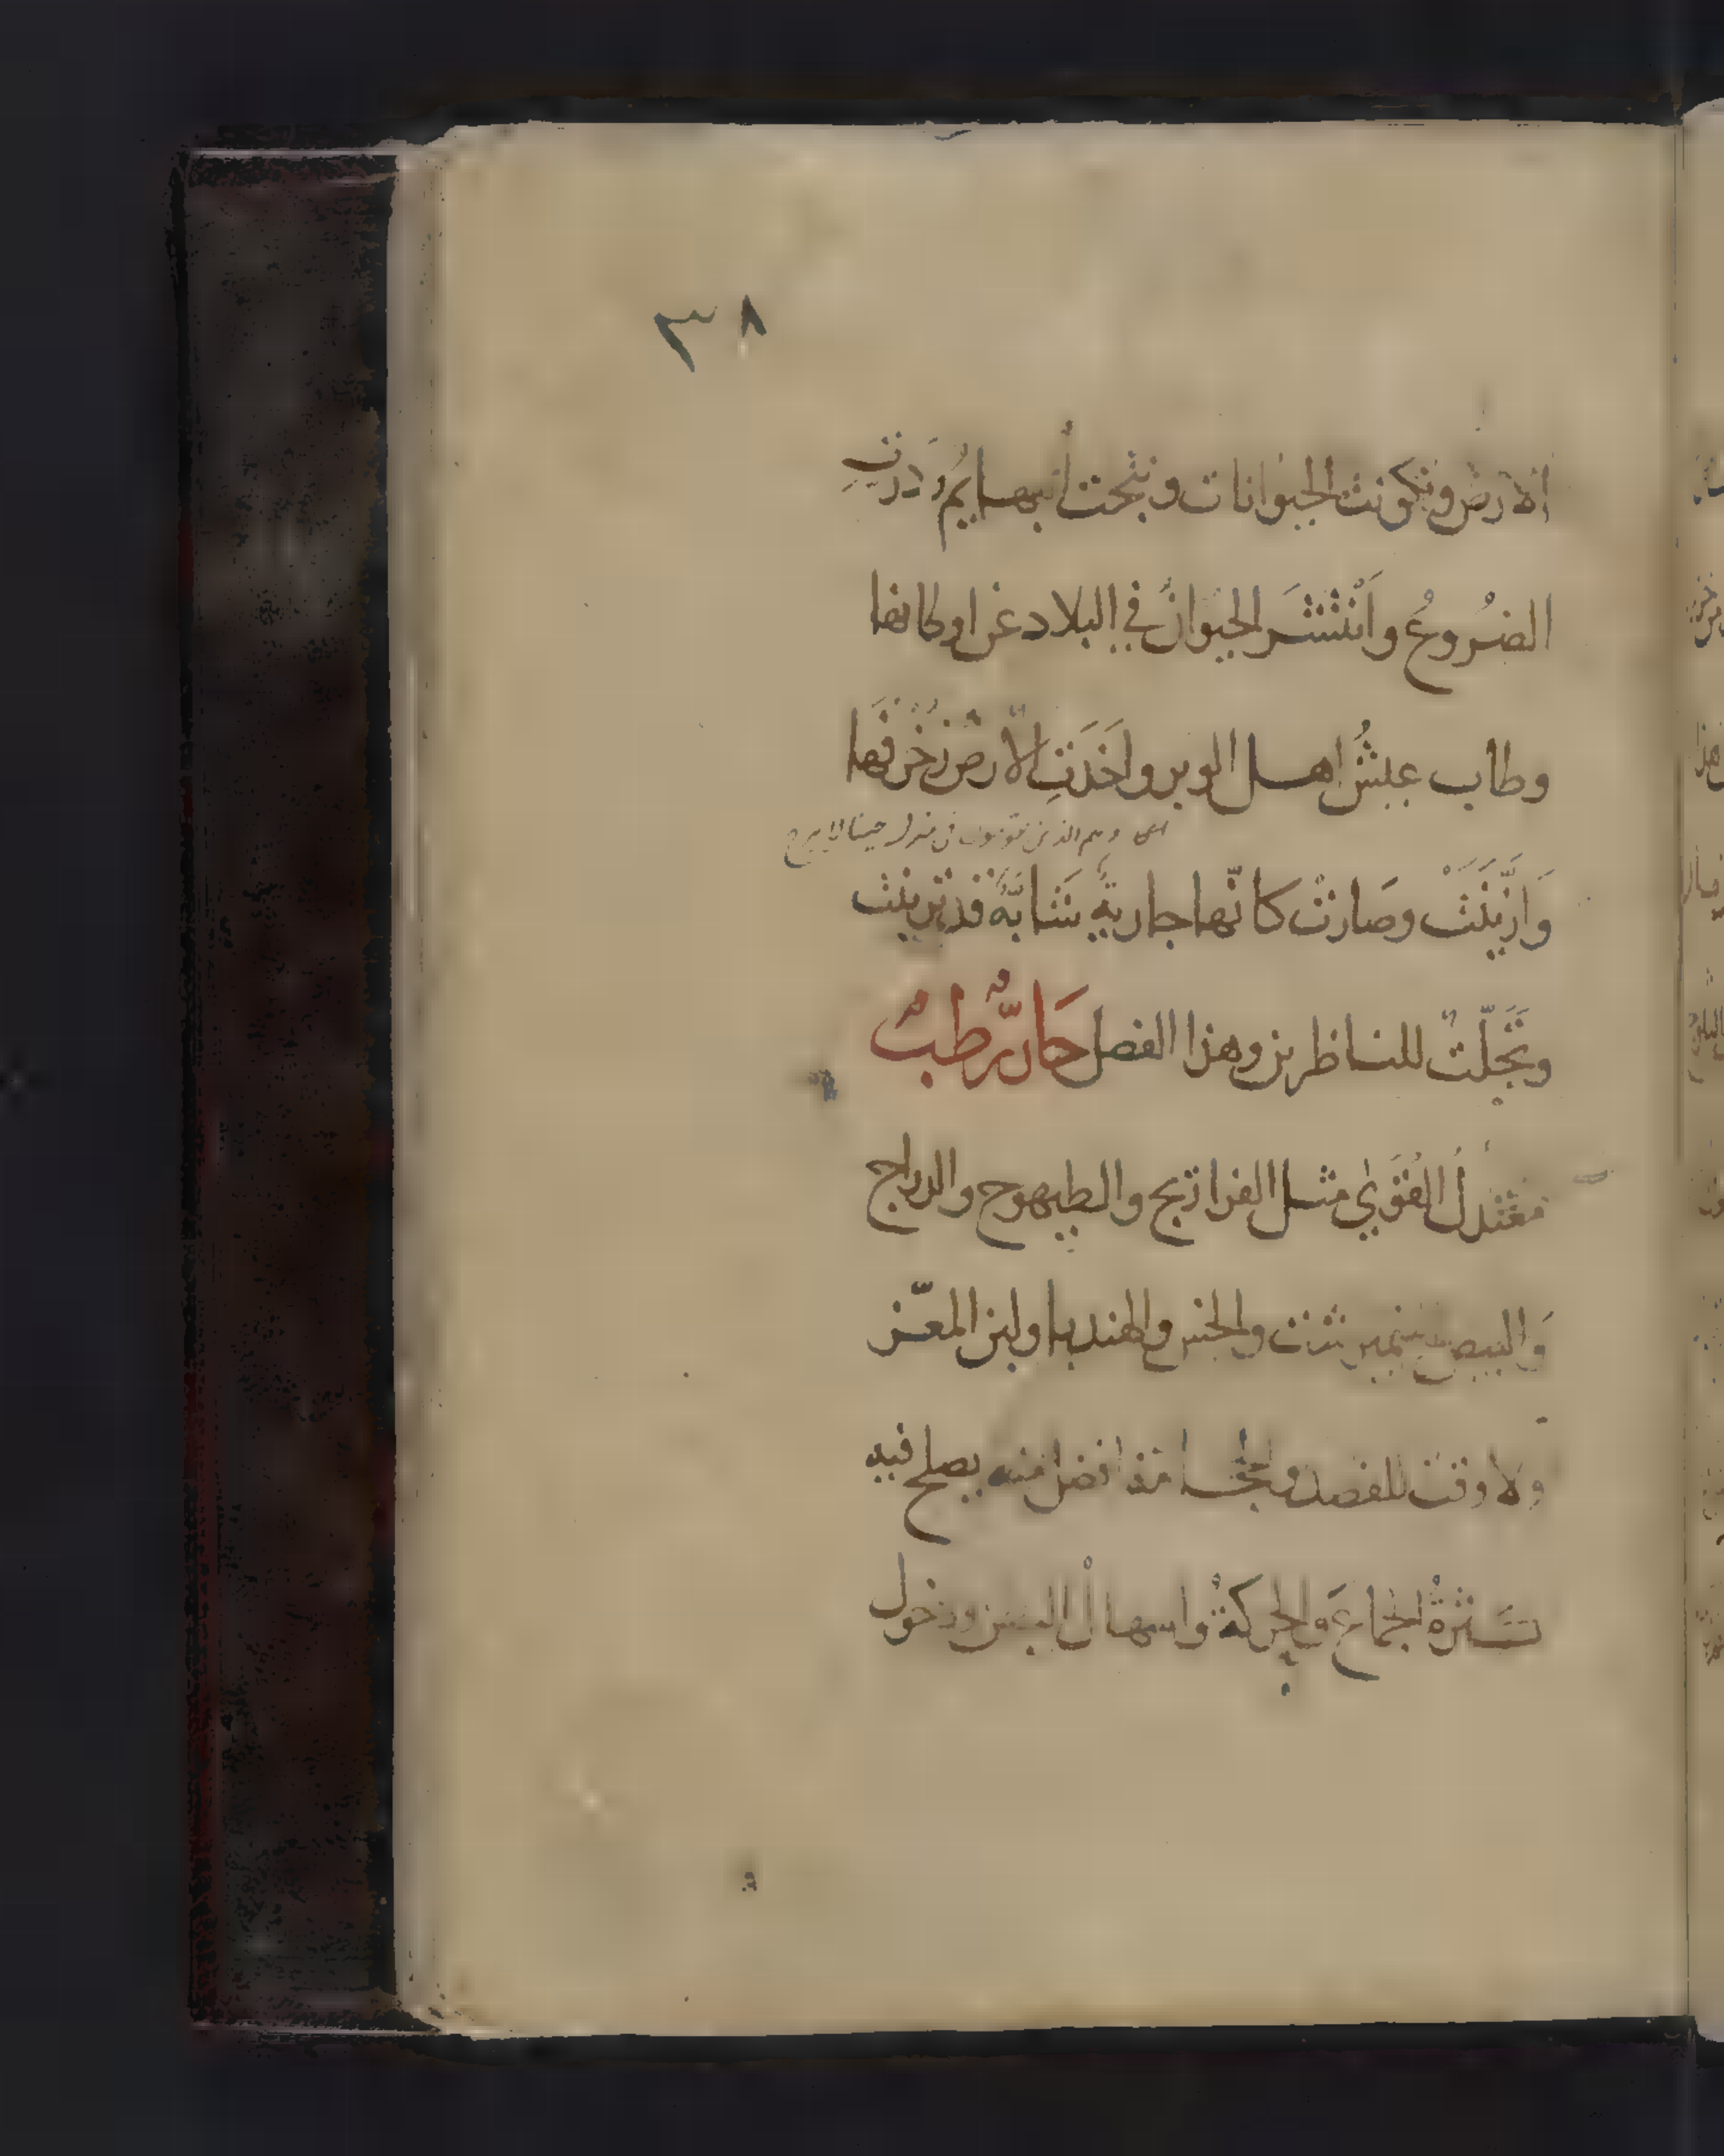 ٣٨
الأرض وتكونت الحيوانات ونتجت البهايم ودرت
الضروع وانتشر الحيوان في البلاد عن اوطانها
وطاب عيش اهل الوبر واخذت الارض زخرفها
وازّينت وصارت كانّها جارية شابّة قد تزينت
وتجلّت للناظرين وهذا الفصل حارّ رطب
معتدل القوي مثل الفراريج والطيهوج والدراج
والبيض والخس والهندبا ولبن المعز
ولا وقت للفصد والحجامة افضل منه يصلح فيه
كثرة الجماع والحركة واسهال البطن ودخول